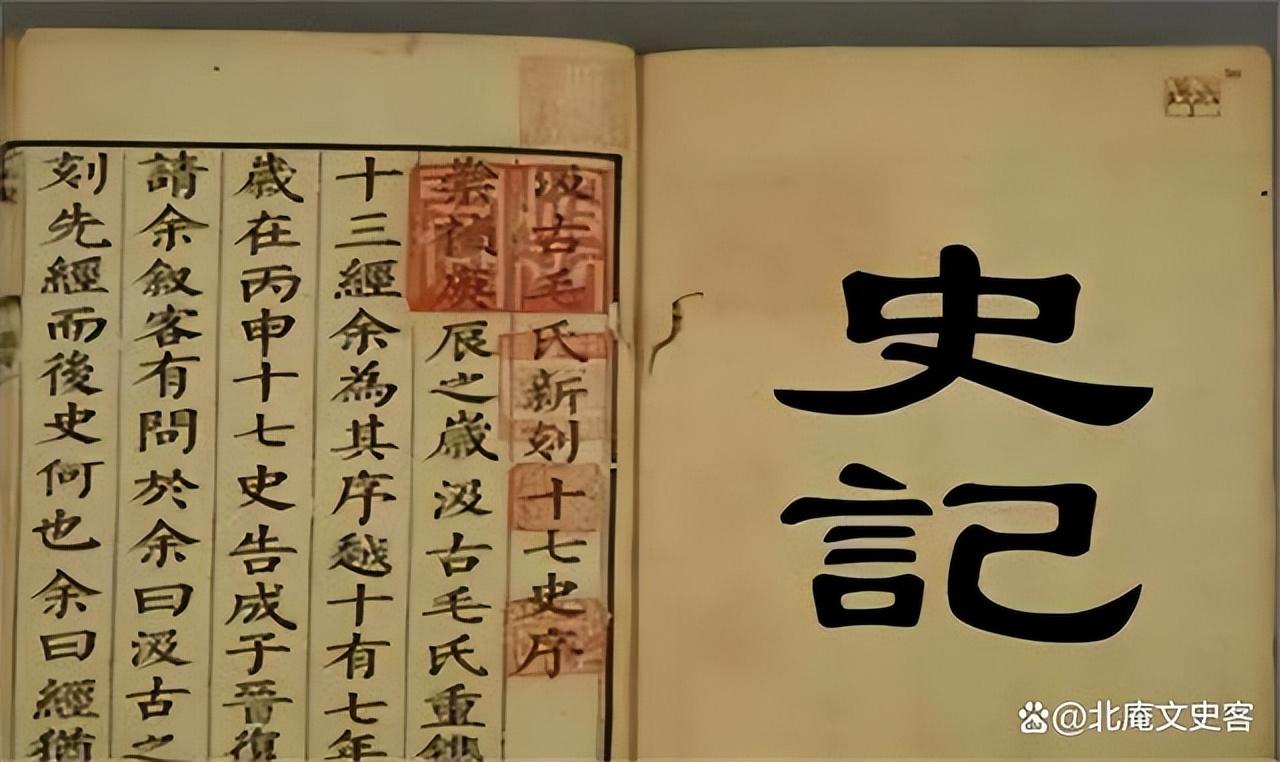 史記
汲古毛氏新刻十七史序
崇禎庚辰之歲汲古毛氏重
十三經余為其序越十有七年
歲在丙申十七史告成子晉復
請余叙客有問於余曰汲古之
刻先經而後史何也余曰經猶
@北庵文史客